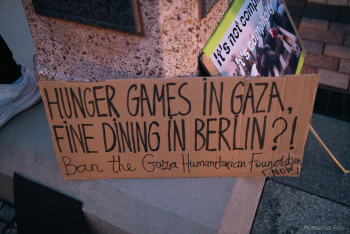 it's not compli
HUNGER GAMES IN GAZA,
FINE DINING IN BERLIN?!
Ban the Gaza Humanitarian Foundation
NOW!